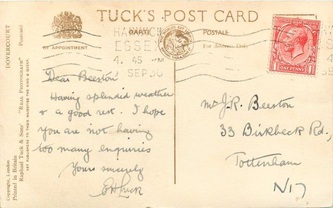 TUCK'S POST CARD
CARTE POSTALE
BY APPOINTMENT
For Address Only
ESSEX
4. 45 PM
SEP 30
DOVERCOURT
"REAL PHOTOGRAPH" Postcard
Raphael Tuck & Sons'
Printed in Britain
Copyright, London
Dear Beeston
Having splendid weather
& a good rest. I hope
you are not having
too many enquiries
Yours sincerely
Mr J.R. Beeston
33 Birkbeck Rd,
Tottenham
N17